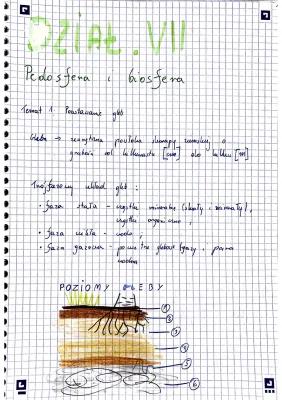 DZIAŁ. VII
Pedosfera i biosfera
Temat 1. Powstawanie gleb
Gleba → zewnętrzna powłoka skorupy ziemskiej, o
grubości od kilkunastu [cm] do kilku [m]
Trójfazowy układ gleb:
• faza stała - cząstki mineralne (skały i minerały),
cząstki organiczne;
• faza ciekła - woda;
• faza gazowa - powietrze glebowe (gazy) i para
wodna
POZIOMY GLEBY
①
②
③
④
⑤
⑥